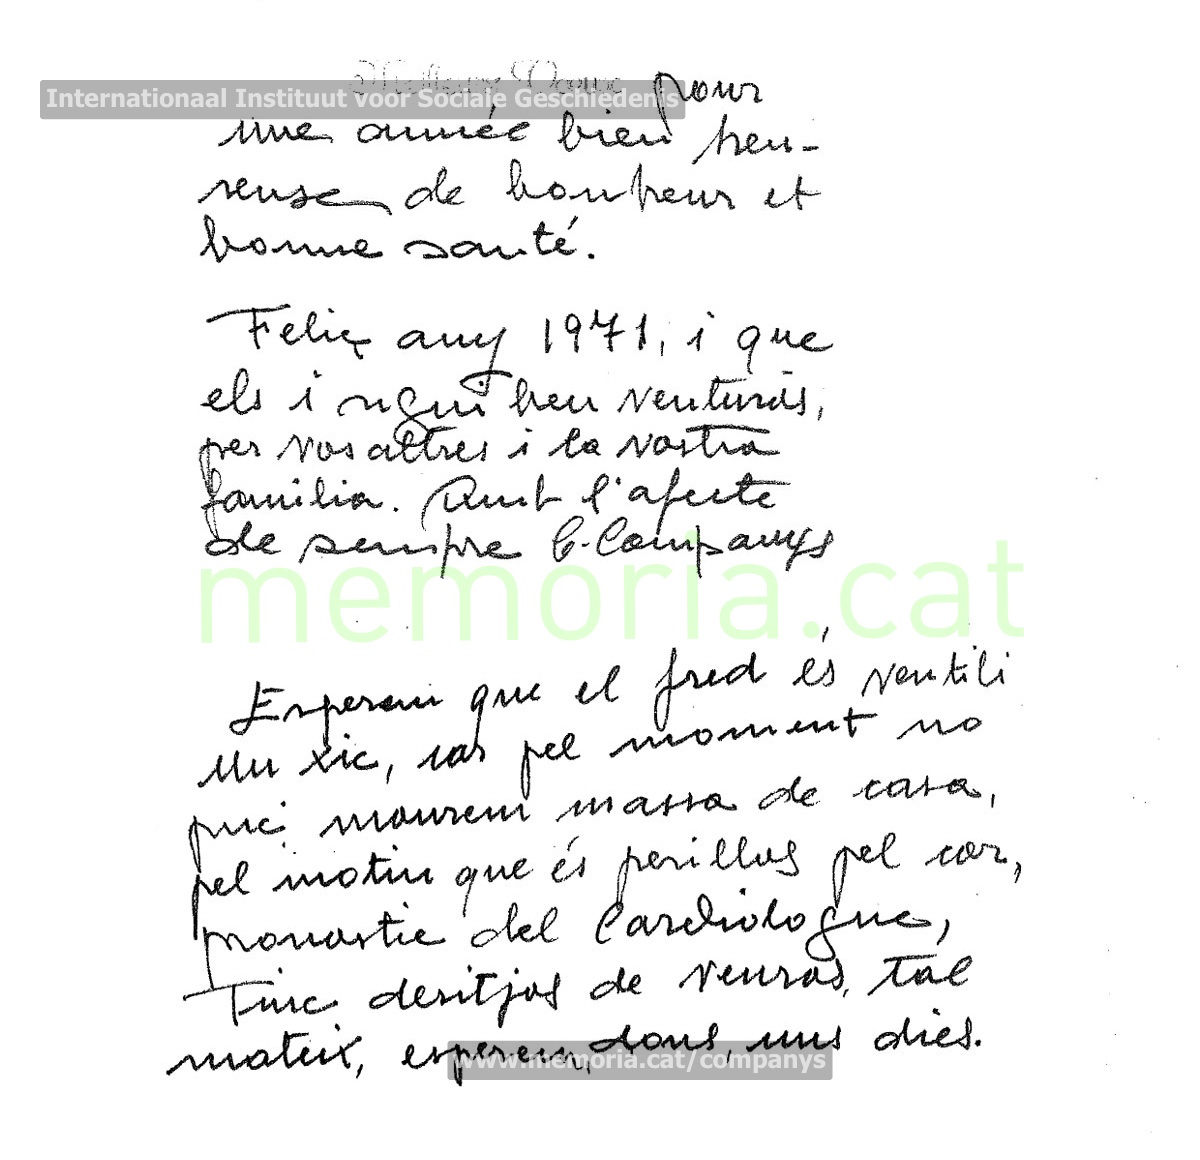 Meilleurs Voeux pour
Internationaal Instituut voor Sociale Geschiedenis
une année bien heu-
reuse de bonheur et
bonne santé.
Feliç any 1971, i que
els i sigui ben venturós,
per vosaltres i la vostra
familia. Amb l'afecte
de sempre C. Companys
memoria.cat
Esperem que el fred és ventili
un xic, car pel moment no
puc mourem massa de casa,
pel motiu que és perillos pel cor,
pronostic del Cardiologue,
Tinc desitjos de veuros, tal
mateix, esperem, dons, uns dies.
www.memoria.cat/companys